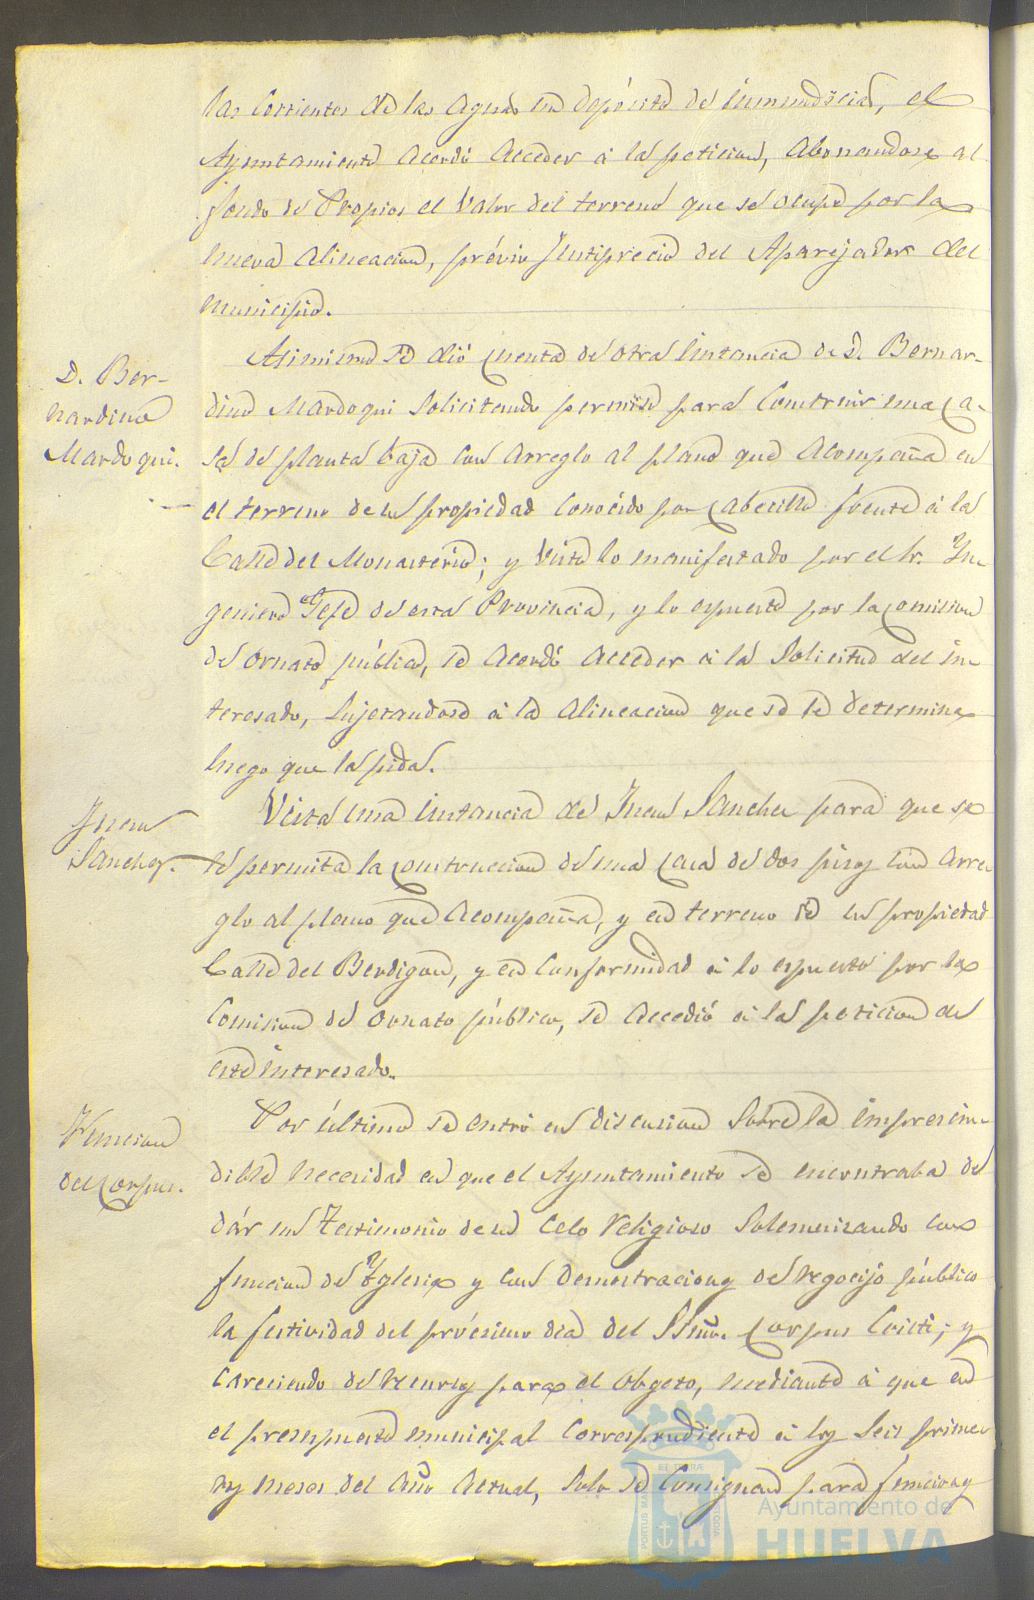 las corrientes de las aguas en depósito de inmundicias, el
Ayuntamiento acordó acceder á la peticion, abonandose al
fondo de Propios el valor del terreno que se ocupe por la
nueva alineacion, prévio justiprecio del Aparejador del
Municipio.
D. Ber-
nardino
Mardoqui.
Asimismo se dió cuenta de otra instancia de D. Bernar-
dino Mardoqui solicitando permiso para construir una ca-
sa de planta baja con arreglo al plano que acompaña en
el terreno de su propiedad conocido por Cabecillo frente á la
Calle del Monasterio; y visto lo manifestado por el Sr. In-
geniero Gefe de esta Provincia, y lo espuesto por la comision
de ornato público, se acordó acceder á la solicitud del in-
teresado, sujetandose á la alineacion que se le determine
luego que la pida.
Juan
Sanchez.
Vista una instancia de Juan Sanchez para que se
le permita la construccion de una casa de dos pisos con arre-
glo al plano que acompaña, y en terreno de su propiedad
Calle del Berdigon, y en conformidad á lo espuesto por la
Comision de ornato público, se accedió á la peticion de
este interesado.
Funcion
del Corpus.
Por último se entró en discusion sobre la imprescin-
dible necesidad en que el Ayuntamiento se encontraba de
dár un testimonio de su celo religioso solemnisando con
funcion de Yglesia y con demostraciones de regocijo público
la festividad del prócsimo dia del SSmo. Corpus Cristi; y
careciendo de recursos para el obgeto, mediante á que en
el presupuesto municipal correspondiente á los seis prime-
ros meses del año actual, solo se consignan para funciones
PORTUS MARIS
ET TERRÆ
CUSTODIA
Ayuntamiento de
HUELVA